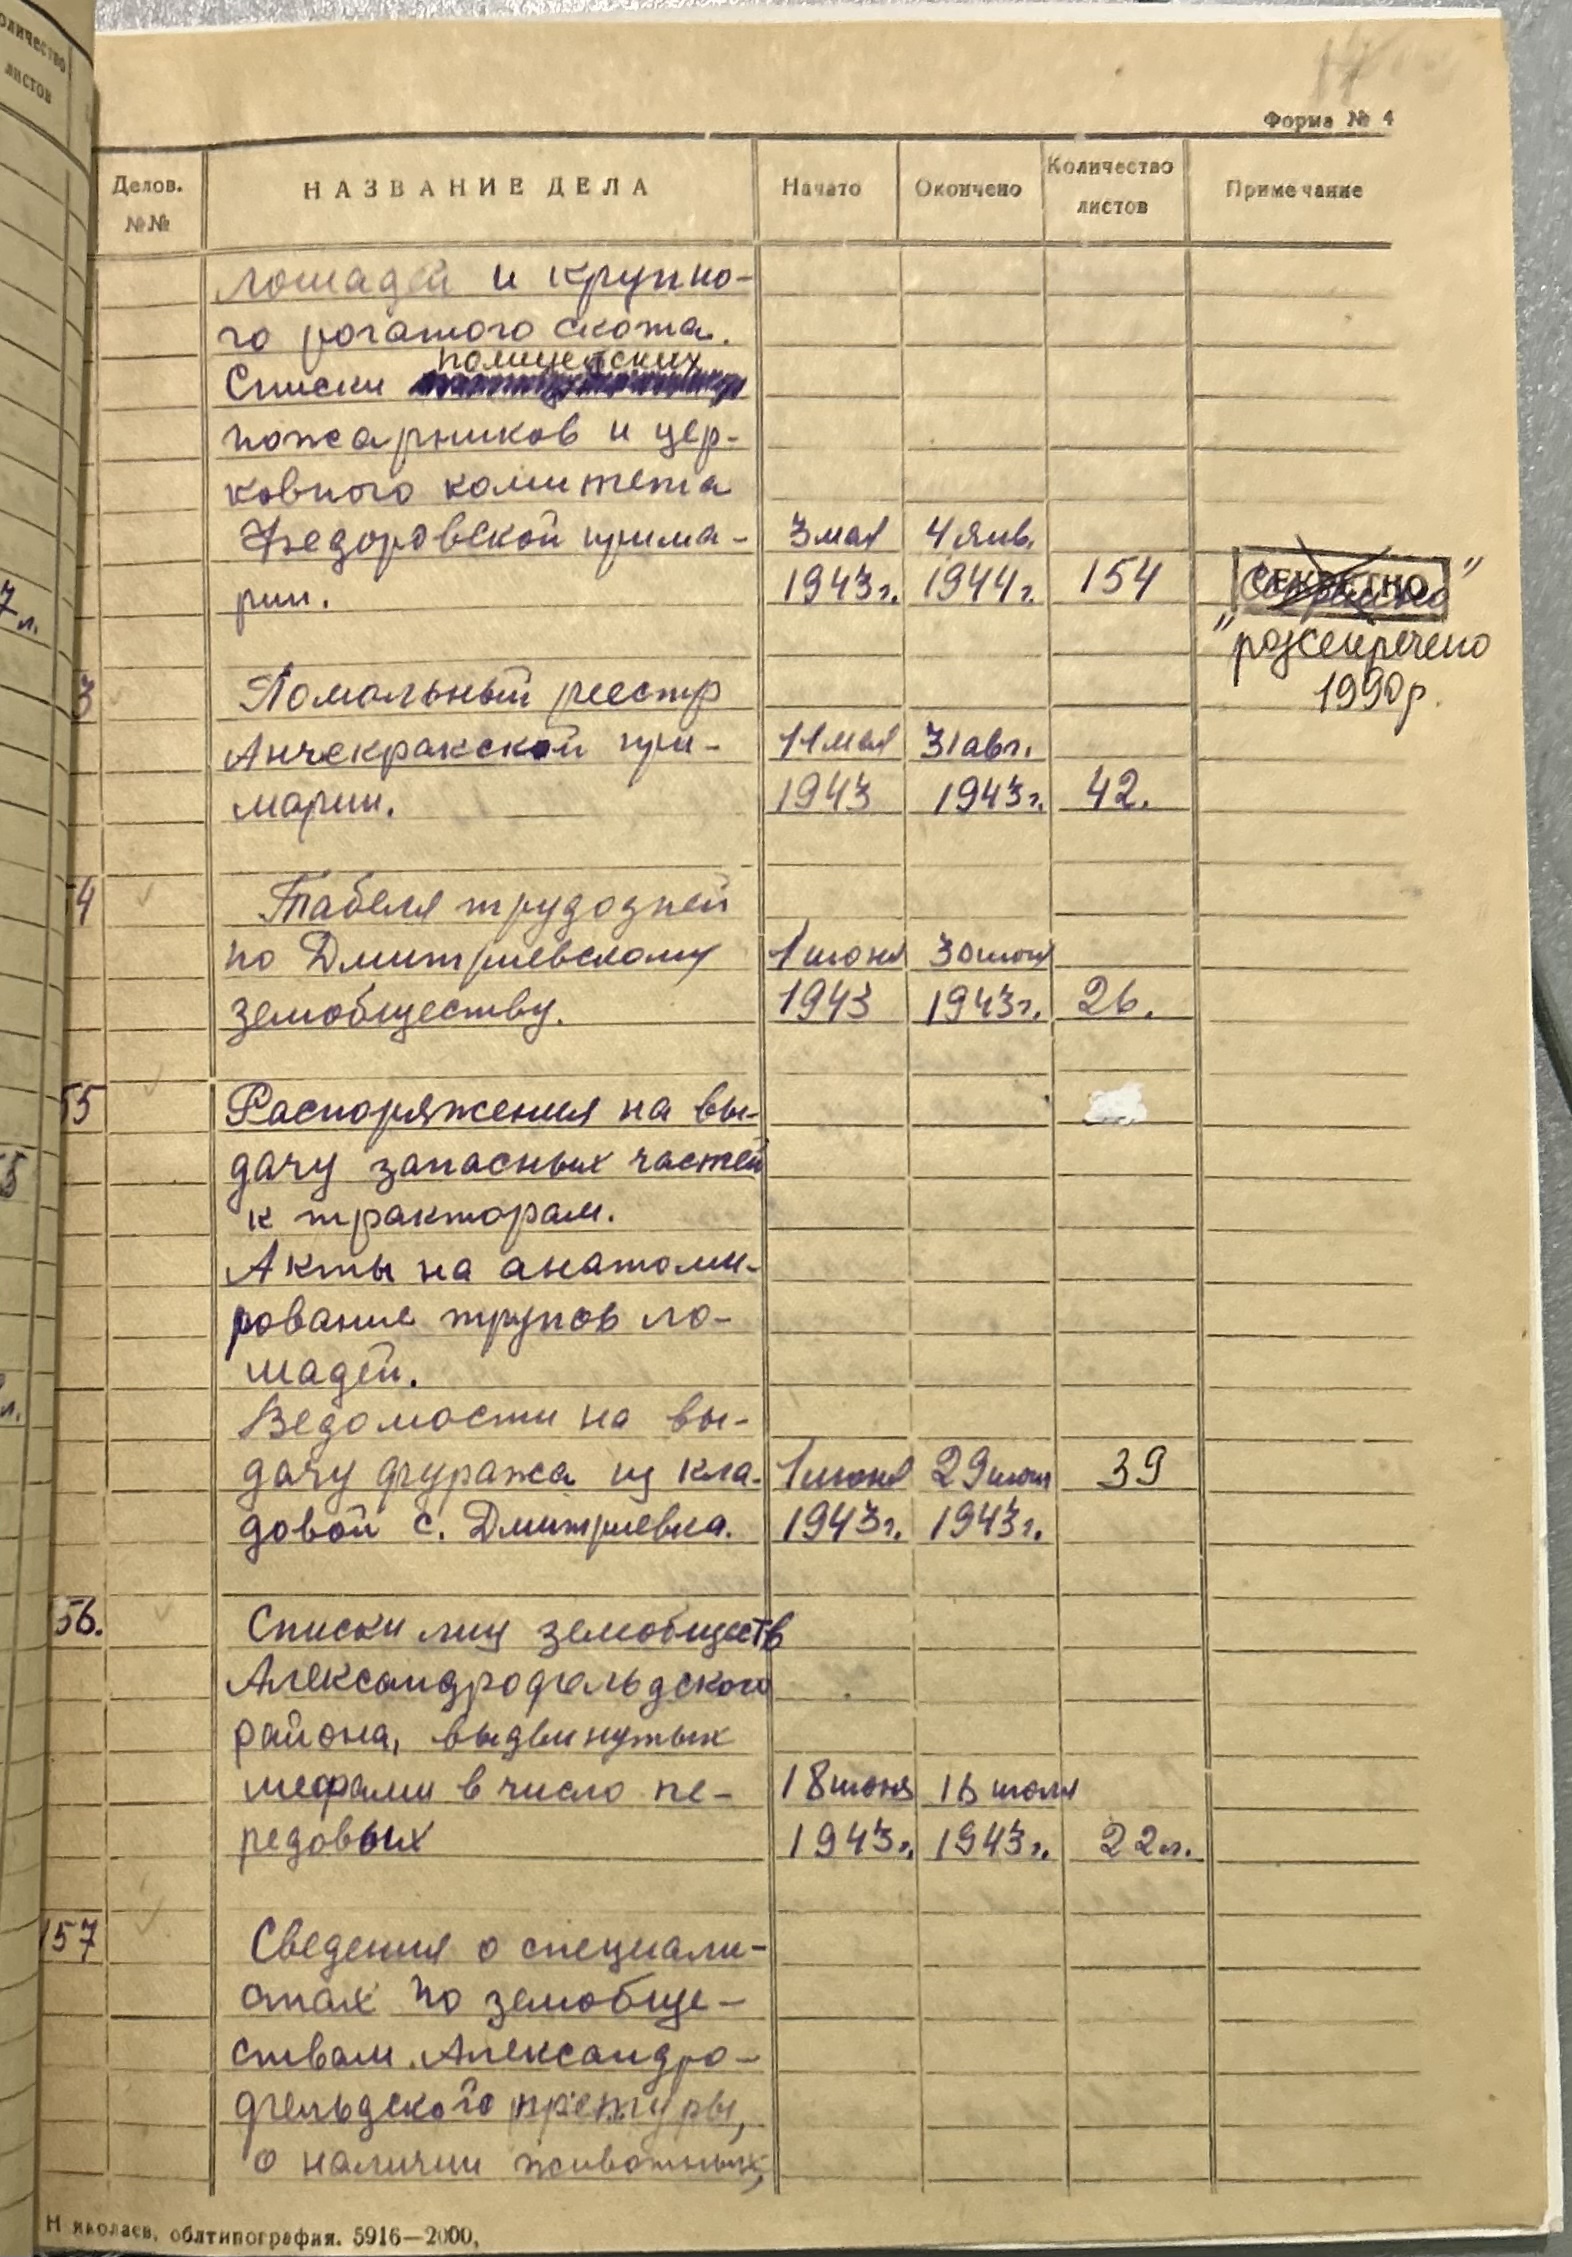 количество
листов
7л.
5
л.
17
Форма № 4
Делов.
№№
НАЗВАНИЕ ДЕЛА
Начато
Окончено
Количество
листов
Примечание
лошадей и крупно-
го рогатого скота.
полицейских
Списки
пожарников и цер-
ковного комитета
Федоровской прима-
3 мая
4 янв.
рии.
1943г.
1944г.
154
СЕКРЕТНО
"
"розсекречено
1990р.
3
Помольный реестр
Анчекракской при-
11 мая
31 авг.
марии.
1943
1943г.
42.
4
Табеля трудодней
по Дмитриевскому
1 июня
30 июня
земобществу.
1943
1943г.
26.
55
Распоряжения на вы-
дачу запасных частей
к тракторам.
Акты на анатоми-
рование трупов ло-
шадей.
Ведомости на вы-
дачу фуража из кла-
1 июня
29 июня
39
довой с. Дмитриевка.
1943г.
1943г.
56.
Списки лиц земобществ
Александрофельдского
района, выдвинутых
шефами в число пе-
18 июня
16 июля
редовых
1943г.
1943г.
22л.
157
Сведения о специали-
стах по земобще-
ствам Александро-
фельдского претуры,
о наличии животных,
Николаев, облтипография. 5916—2000,